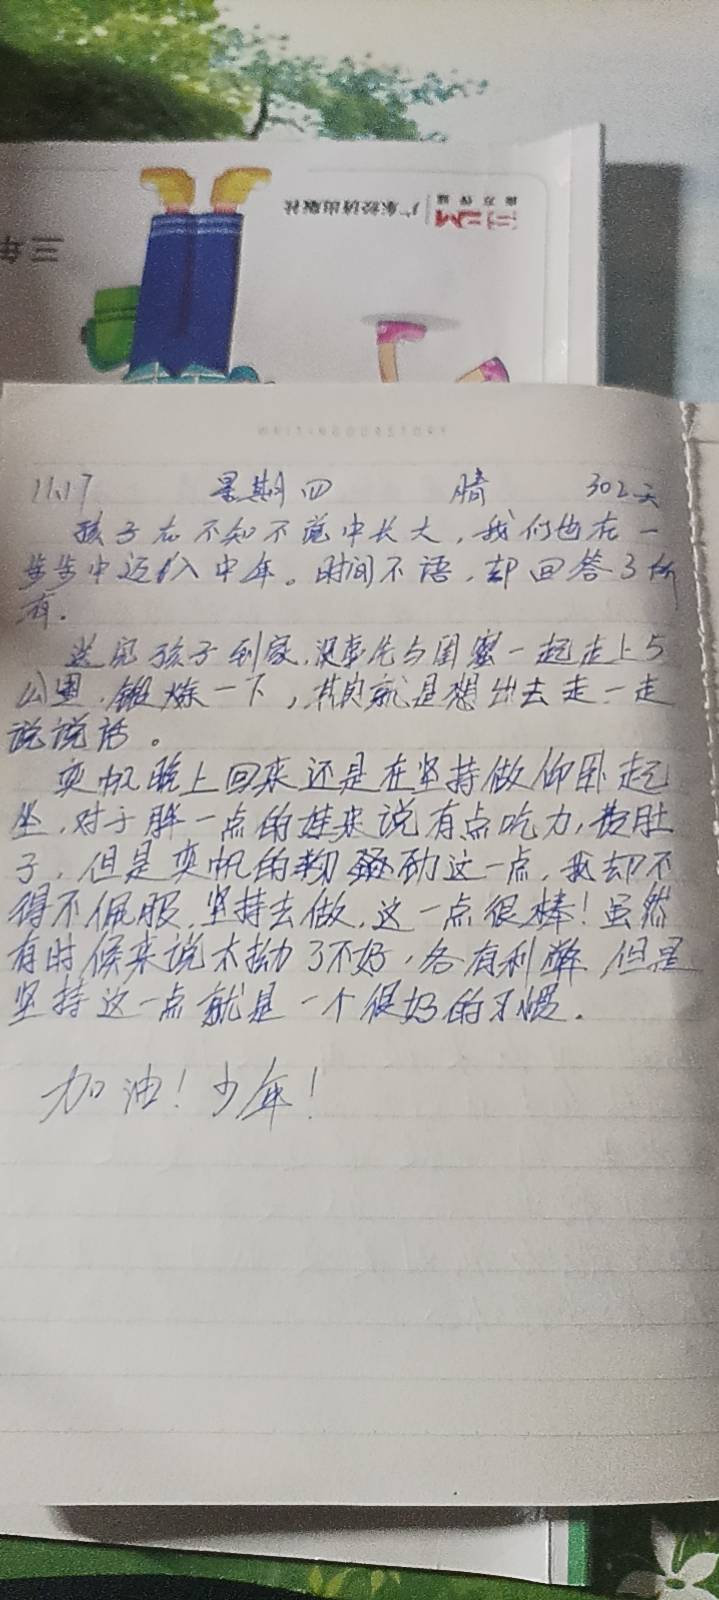 广东经济出版社
南方传媒
三年
11.17 星期四 晴 302天
孩子在不知不觉中长大，我们也在一
步步中迈入中年。时间不语，却回答了所
有.
送完孩子到家，没事先与闺蜜一起走上5
公里，锻炼一下，其实就是想出去走一走
说说话。
奕帆晚上回来还是在坚持做仰卧起
坐，对于胖一点的娃来说有点吃力，费肚
子，但是奕帆的拗劲这一点，我却不
得不佩服，坚持去做，这一点很棒！虽然
有时候来说太拗了不好，各有利弊，但是
坚持这一点就是一个很好的习惯.
加油！少年！